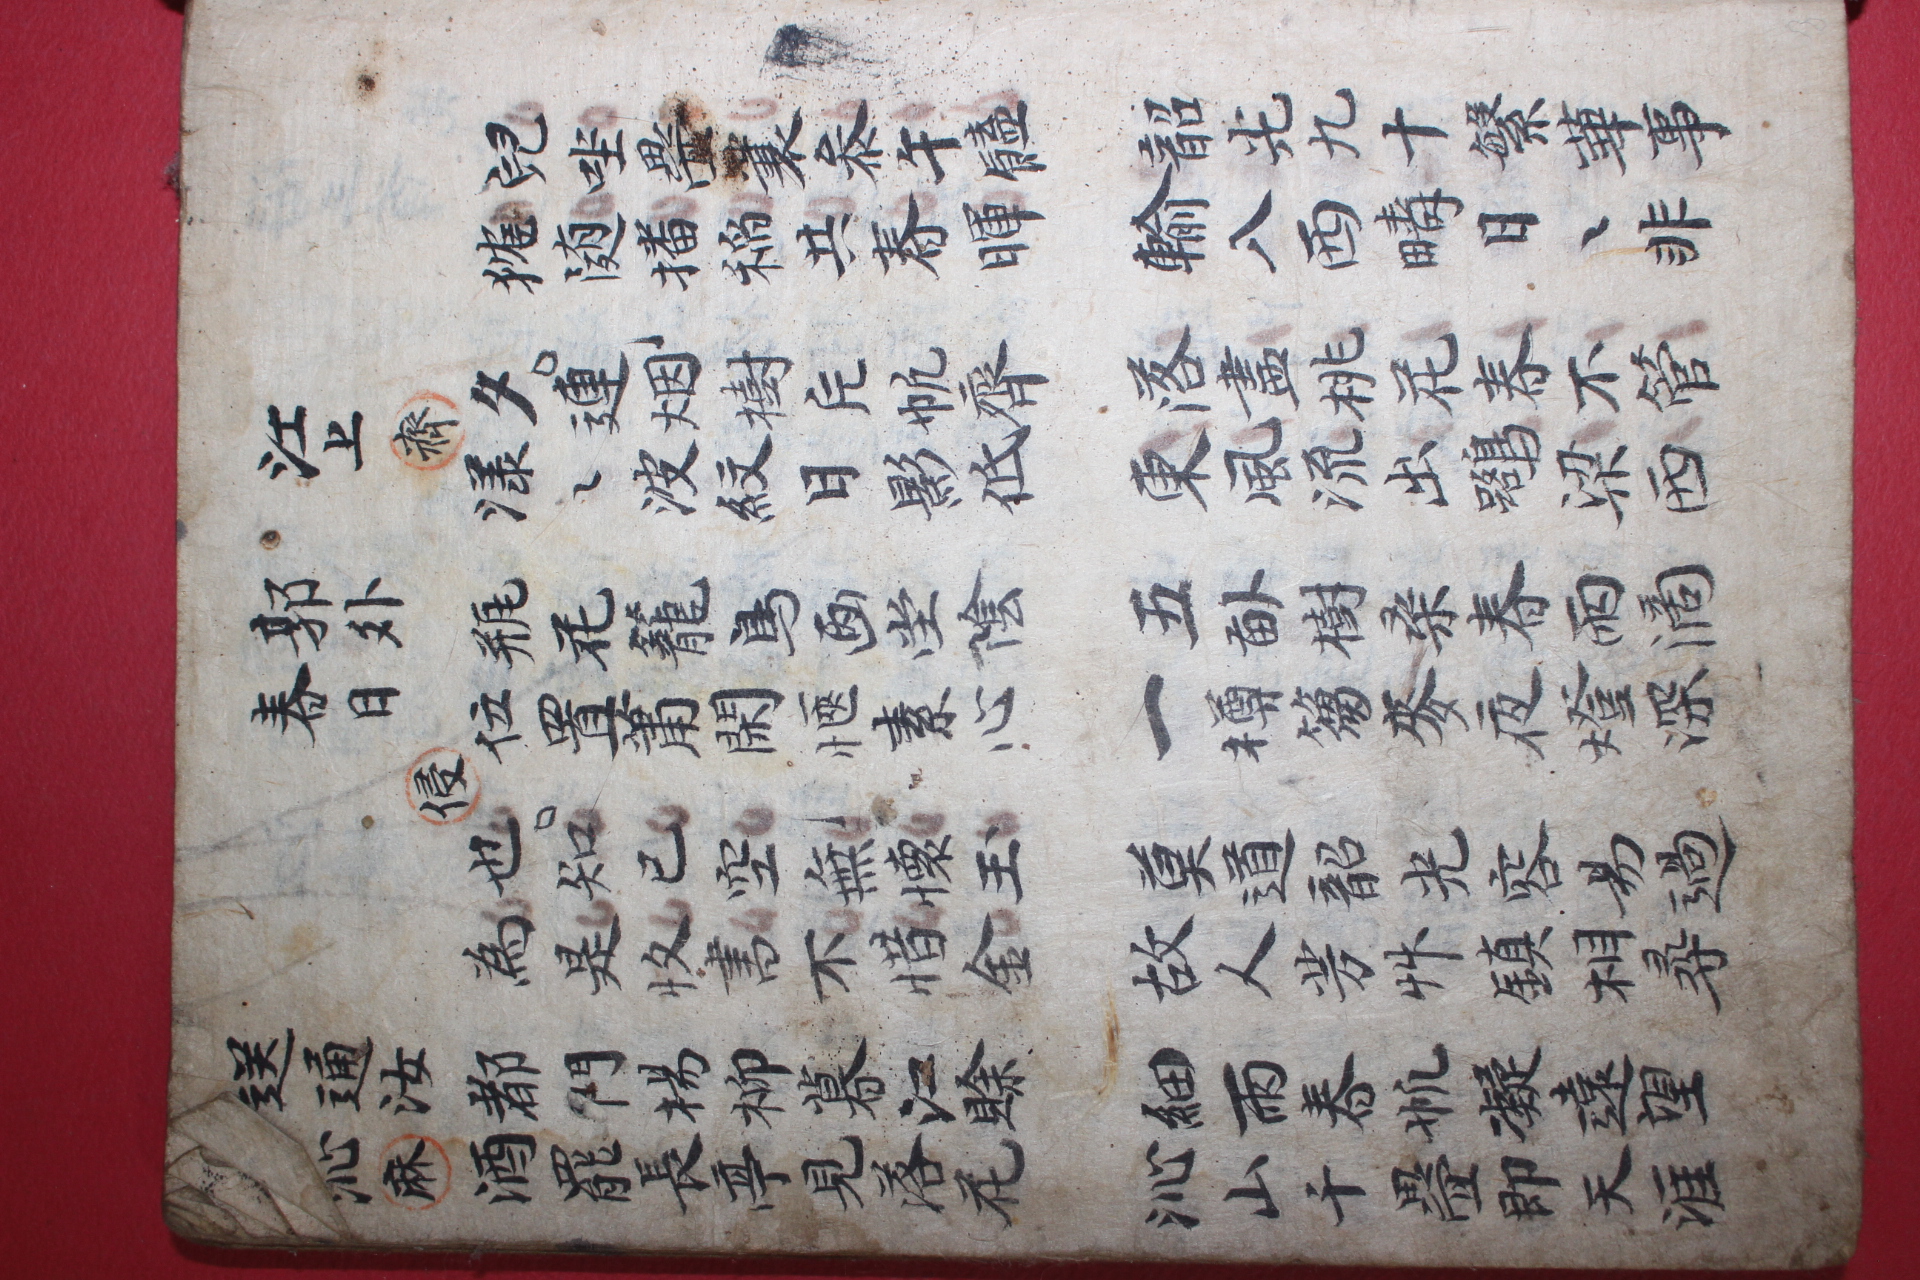 兒坐疊裏忝午饁
韶光九十繁華事
㹨随播稻共春暉
輸八西疇日〻非
江上 齊
夕連烟樹片帆齊
落盡桃花春不管
漾〻波紋日影低
東風流出鸂梁西
郭外
瓶花籠鳥画坐陰
五畝樹桑春雨滴
春日
位置蕭閑愜素心
一樽蒭麥夜燈深
侵
也知已空無懷玉
莫道韶光容易過
為是收書不惜金
故人芳艸鎮相尋
送通汝
都門楊柳暮江賖
細雨春帆凝遠望
沁 麻
酒罷長亭見落花
沁山千疊即天涯